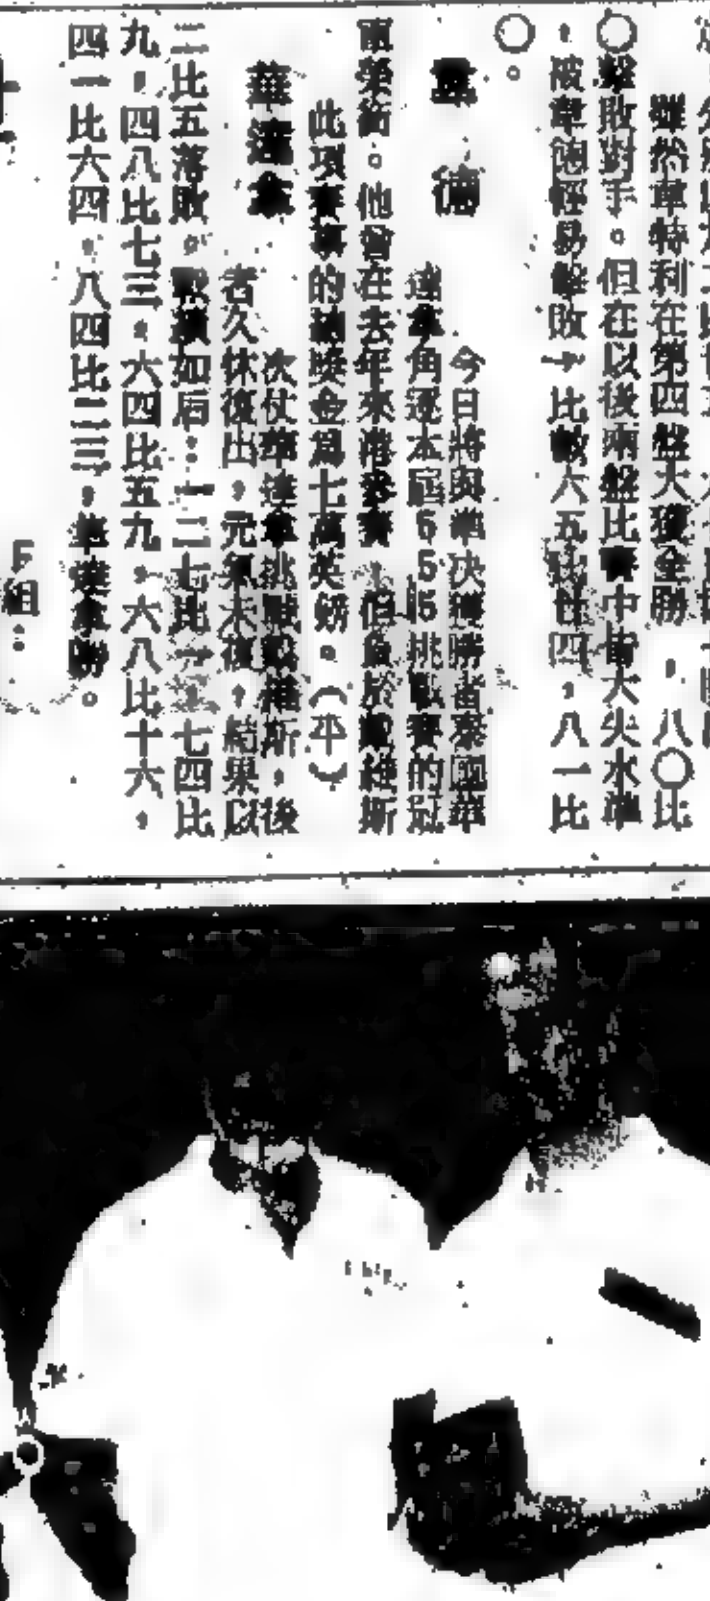 雖然韋特利在第四盤大獲全勝,八〇比
〇擊敗對手。但在以後兩盤比賽中皆大失水準
,被韋德輕易擊敗,比數六五比廿四,八一比
〇。
韋德
今日將與準決獲勝者泰國華
達拿角逐本屆555挑戰賽的冠
軍榮銜。他曾在去年來港參賽,但負於戴維斯
此項賽事的總獎金為七萬英鎊。(平)
華達拿
次仗華達拿挑戰戴維斯,後
者久休復出,元氣未復,結果以
二比五落敗。戰績如后:一二七比一,七四比
九,四八比七三,六四比五九,六八比十六,
四一比六四,八四比二三,華達拿勝。
F組: